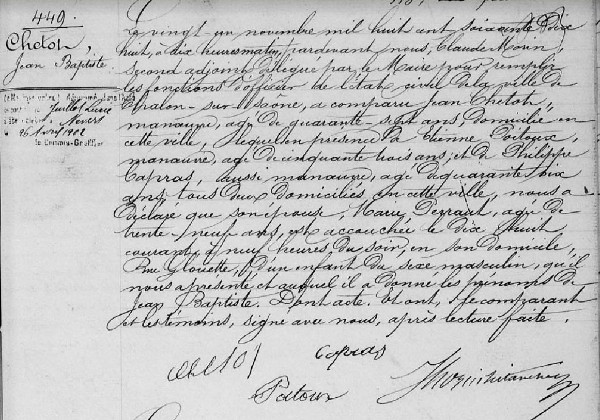 449.
Cheton,
Jean Baptiste
Nevers
26 1902
le Commis-Greffier
Le vingt un novembre mil huit cent soixante dix
huit, à dix heures matin, pardevant nous, Claude
second adjoint délégué par le Maire pour remplir
les fonctions d'officier de l'état civil de la ville de
Chalon-sur-Saone, a comparu Jean Cheton,
manœuvre, agé de quarante-sept ans, domicilié en
cette ville, lequel en présence d'Etienne
manœuvre, agé de cinquante trois ans, et de Philippe
Capras, aussi manœuvre, agé de quarante six
ans, tous deux domiciliés en cette ville, nous a
déclaré que son épouse, Marie agée de
trente-neuf ans, est accouchée le dix huit
courant, à neuf heures du soir, en son domicile,
Rue d'un enfant du sexe masculin, qu'il
nous a présenté et auquel il a donné les prénoms de
Jean Baptiste. Dont acte. Et ont, le comparant
et les témoins, signé avec nous, après lecture faite.
Capras